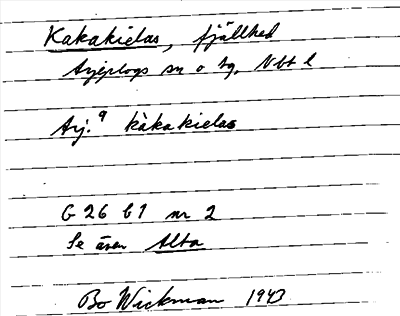 Kakakielas, fjällhed
Arjeplogs sn o tg, Vbt l
Arj.⁹ kàkakielas
G 26 b1 nr 2
Se även Alta
Bo Wickman 1943